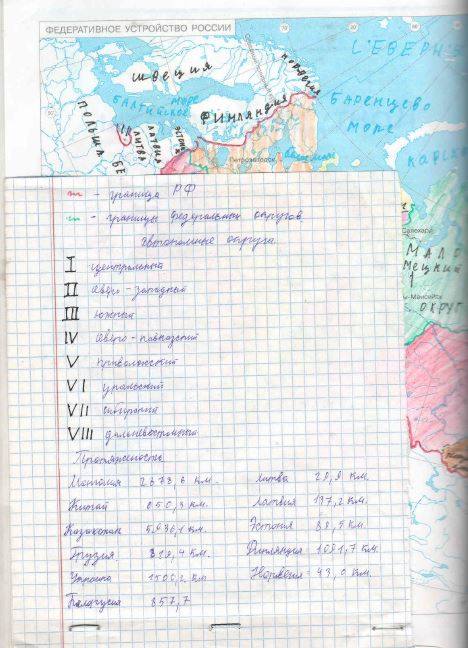 ФЕДЕРАТИВНОЕ УСТРОЙСТВО РОССИИ
70°
СЕВЕРН
НОРВЕГИЯ
ШВЕЦИЯ
БАЛТИЙСКОЕ МОРЕ
ФИНЛЯНДИЯ
БАРЕНЦЕВО
МОРЕ
ПОЛЬША
ЛИТВА
ЛАТВИЯ
БЕ
Петрозаводск
КАРСК
Салехард
МАЛО
НЕЦКИЙ
ОКРУГ
- граница РФ
- границы федеральных округов
автономные округа
I центральный
II Северо-западный
III южный
IV Северо-кавказский
V приволжский
VI уральский
VII сибирский
VIII дальневосточный
Протяженость
Монголия км. Литва 29,9 км.
Китай 050,3 км. Латвия 197,2 км.
Казахстан км Эстония 89,5 км.
Грузия 4 км. Финляндия 7 км.
Украина км Норвегия 43,0 км.
Белагусия 857,7